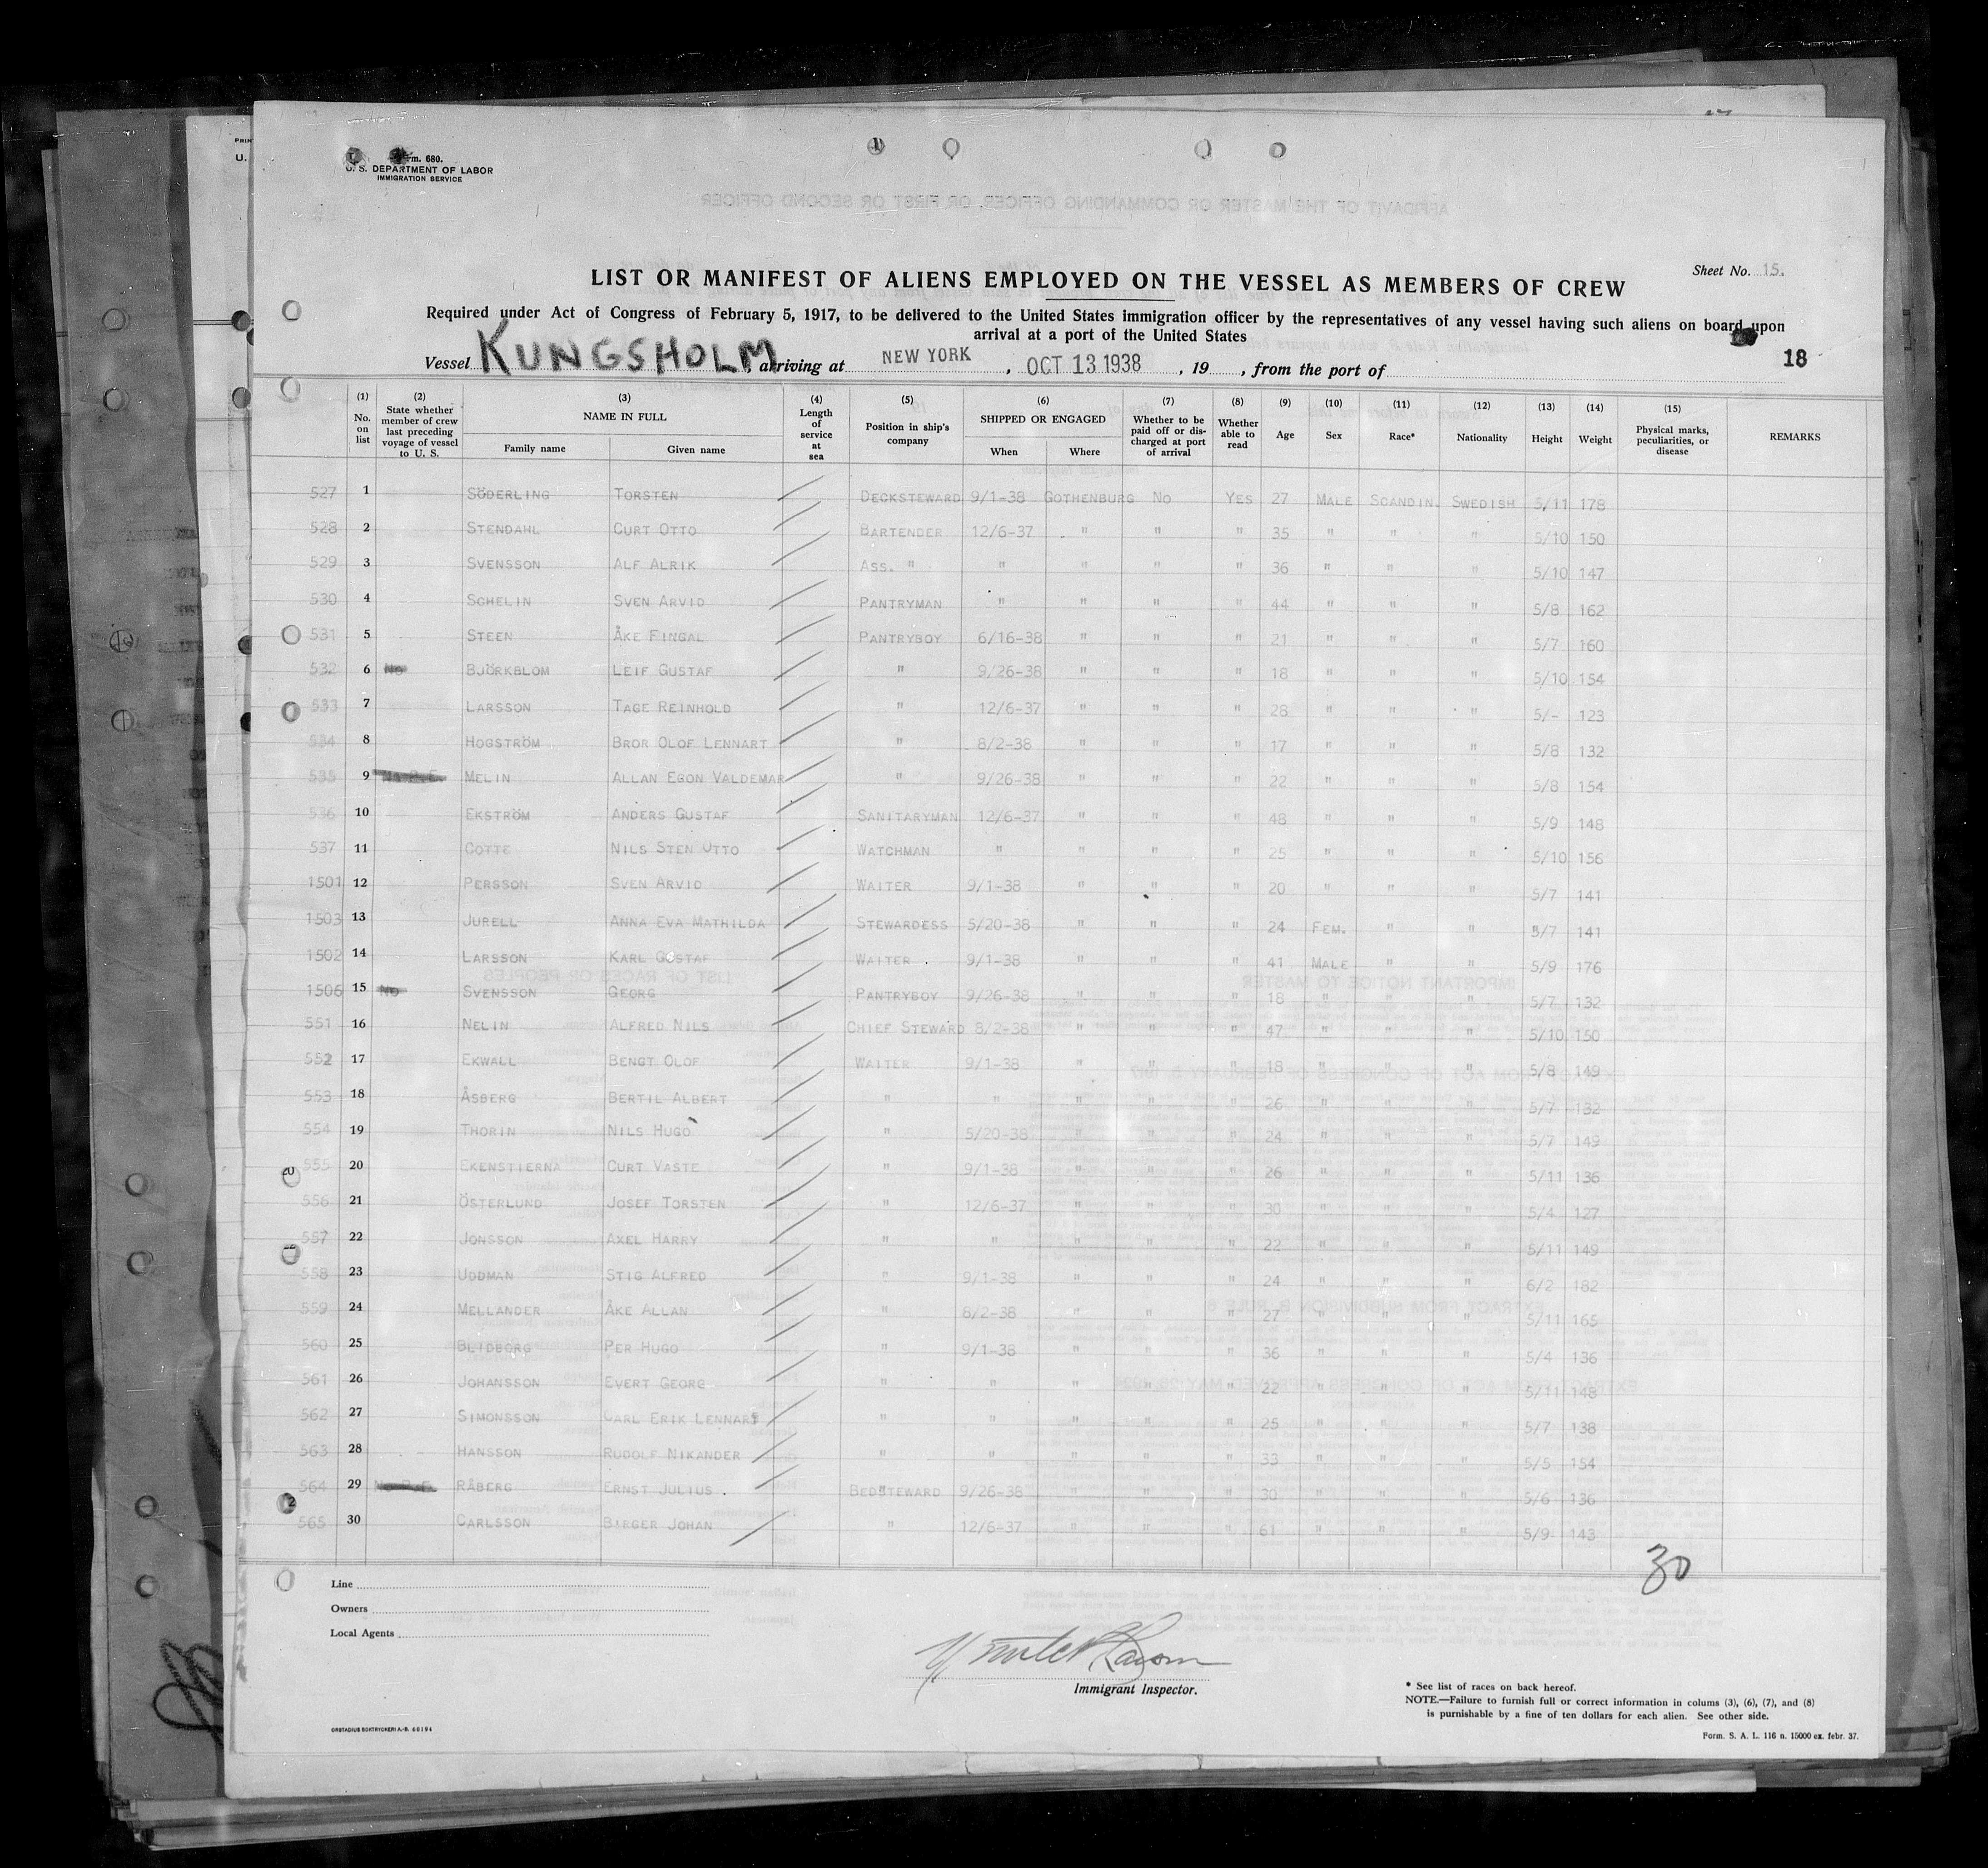 Form. 680.
U. S. DEPARTMENT OF LABOR
IMMIGRATION SERVICE
Sheet No. 15.
LIST OR MANIFEST OF ALIENS EMPLOYED ON THE VESSEL AS MEMBERS OF CREW
Required under Act of Congress of February 5, 1917, to be delivered to the United States immigration officer by the representatives of any vessel having such aliens on board upon
arrival at a port of the United States
Vessel KUNGSHOLM, arriving at NEW YORK, OCT 13 1938, 19 , from the port of 18
(1) No. on list (2) State whether member of crew last preceding voyage of vessel to U. S. (3) NAME IN FULL Family name Given name (4) Length of service at sea (5) Position in ship's company (6) SHIPPED OR ENGAGED When Where (7) Whether to be paid off or discharged at port of arrival (8) Whether able to read (9) Age (10) Sex (11) Race* (12) Nationality (13) Height (14) Weight (15) Physical marks, peculiarities, or disease REMARKS
527 1 SÖDERLING TORSTEN DECKSTEWARD 9/1-38 GOTHENBURG NO YES 27 MALE SCANDIN. SWEDISH 5/11 178
528 2 STENDAHL CURT OTTO BARTENDER 12/6-37 " " " 35 " " " 5/10 150
529 3 SVENSSON ALF ALRIK ASS. " " " " " 36 " " " 5/10 147
530 4 SCHELIN SVEN ARVID PANTRYMAN " " " " 44 " " " 5/8 162
531 5 STEEN ÅKE FINGAL PANTRYBOY 6/16-38 " " " 21 " " " 5/7 160
532 6 NO BJÖRKBLOM LEIF GUSTAF " 9/26-38 " " " 18 " " " 5/10 154
533 7 LARSSON TAGE REINHOLD " 12/6-37 " " " 28 " " " 5/- 123
534 8 HOGSTRÖM BROR OLOF LENNART " 8/2-38 " " " 17 " " " 5/8 132
535 9 MELIN ALLAN EGON VALDEMAR " 9/26-38 " " " 22 " " " 5/8 154
536 10 EKSTRÖM ANDERS GUSTAF SANITARYMAN 12/6-37 " " " 48 " " " 5/9 148
537 11 COTTE NILS STEN OTTO WATCHMAN " " " " 25 " " " 5/10 156
1501 12 PERSSON SVEN ARVID WAITER 9/1-38 " " " 20 " " " 5/7 141
1503 13 JURELL ANNA EVA MATHILDA STEWARDESS 5/20-38 " " " 24 FEM. " " 5/7 141
1502 14 LARSSON KARL GUSTAF WAITER 9/1-38 " " " 41 MALE " " 5/9 176
1506 15 NO SVENSSON GEORG PANTRYBOY 9/26-38 " " " 18 " " " 5/7 132
551 16 NELIN ALFRED NILS CHIEF STEWARD 8/2-38 " " " 47 " " " 5/10 150
552 17 EKWALL BENGT OLOF WAITER 9/1-38 " " " 18 " " " 5/8 149
553 18 ÅSBERG BERTIL ALBERT " " " " " 26 " " " 5/7 132
554 19 THORIN NILS HUGO " 5/20-38 " " " 24 " " " 5/7 149
555 20 EKENSTIERNA CURT VASTE " 9/1-38 " " " 26 " " " 5/11 136
556 21 ÖSTERLUND JOSEF TORSTEN " 12/6-37 " " " 30 " " " 5/4 127
557 22 JONSSON AXEL HARRY " " " " " 22 " " " 5/11 149
558 23 UDDMAN STIG ALFRED " 9/1-38 " " " 24 " " " 6/2 182
559 24 MELLANDER ÅKE ALLAN " 8/2-38 " " " 27 " " " 5/11 165
560 25 BLIDBORG PER HUGO " 9/1-38 " " " 36 " " " 5/4 136
561 26 JOHANSSON EVERT GEORG " " " " " 22 " " " 5/11 148
562 27 SIMONSSON CARL ERIK LENNART " " " " " 25 " " " 5/7 138
563 28 HANSSON RUDOLF NIKANDER " " " " " 33 " " " 5/5 154
564 29 RÅBERG ERNST JULIUS BEDSTEWARD 9/26-38 " " " 30 " " " 5/6 136
565 30 CARLSSON BIRGER JOHAN " 12/6-37 " " " 61 " " " 5/9 143
30
Line
Owners
Local Agents
Immigrant Inspector.
* See list of races on back hereof.
NOTE.—Failure to furnish full or correct information in colums (3), (6), (7), and (8)
is purnishable by a fine of ten dollars for each alien. See other side.
Form. S. A. L. 116 n. 15000 ex. febr. 37.